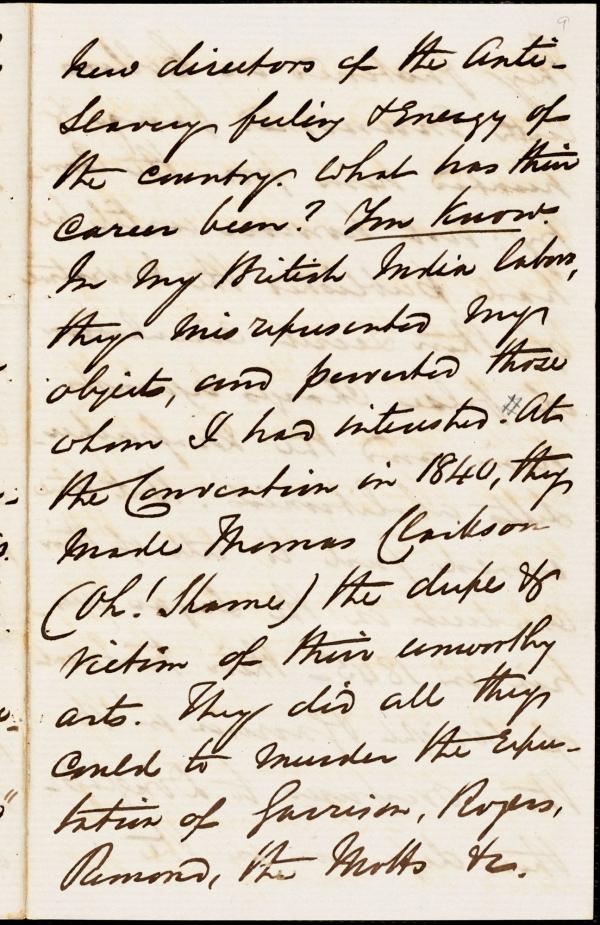 9
new directors of the Anti-
Slavery feeling & Energy of
the country. What has their
career been? You Know.
In my British India labors,
they misrepresented my
objects, and perverted those
whom I had interested. # At
the Convention in 1840, they
made Thomas Clarkson
(Oh! Shame) the dupe &
victim of their unworthy
arts. They did all they
could to murder the repu-
tation of Garrison, Rogers,
Remond, the Motts &c.